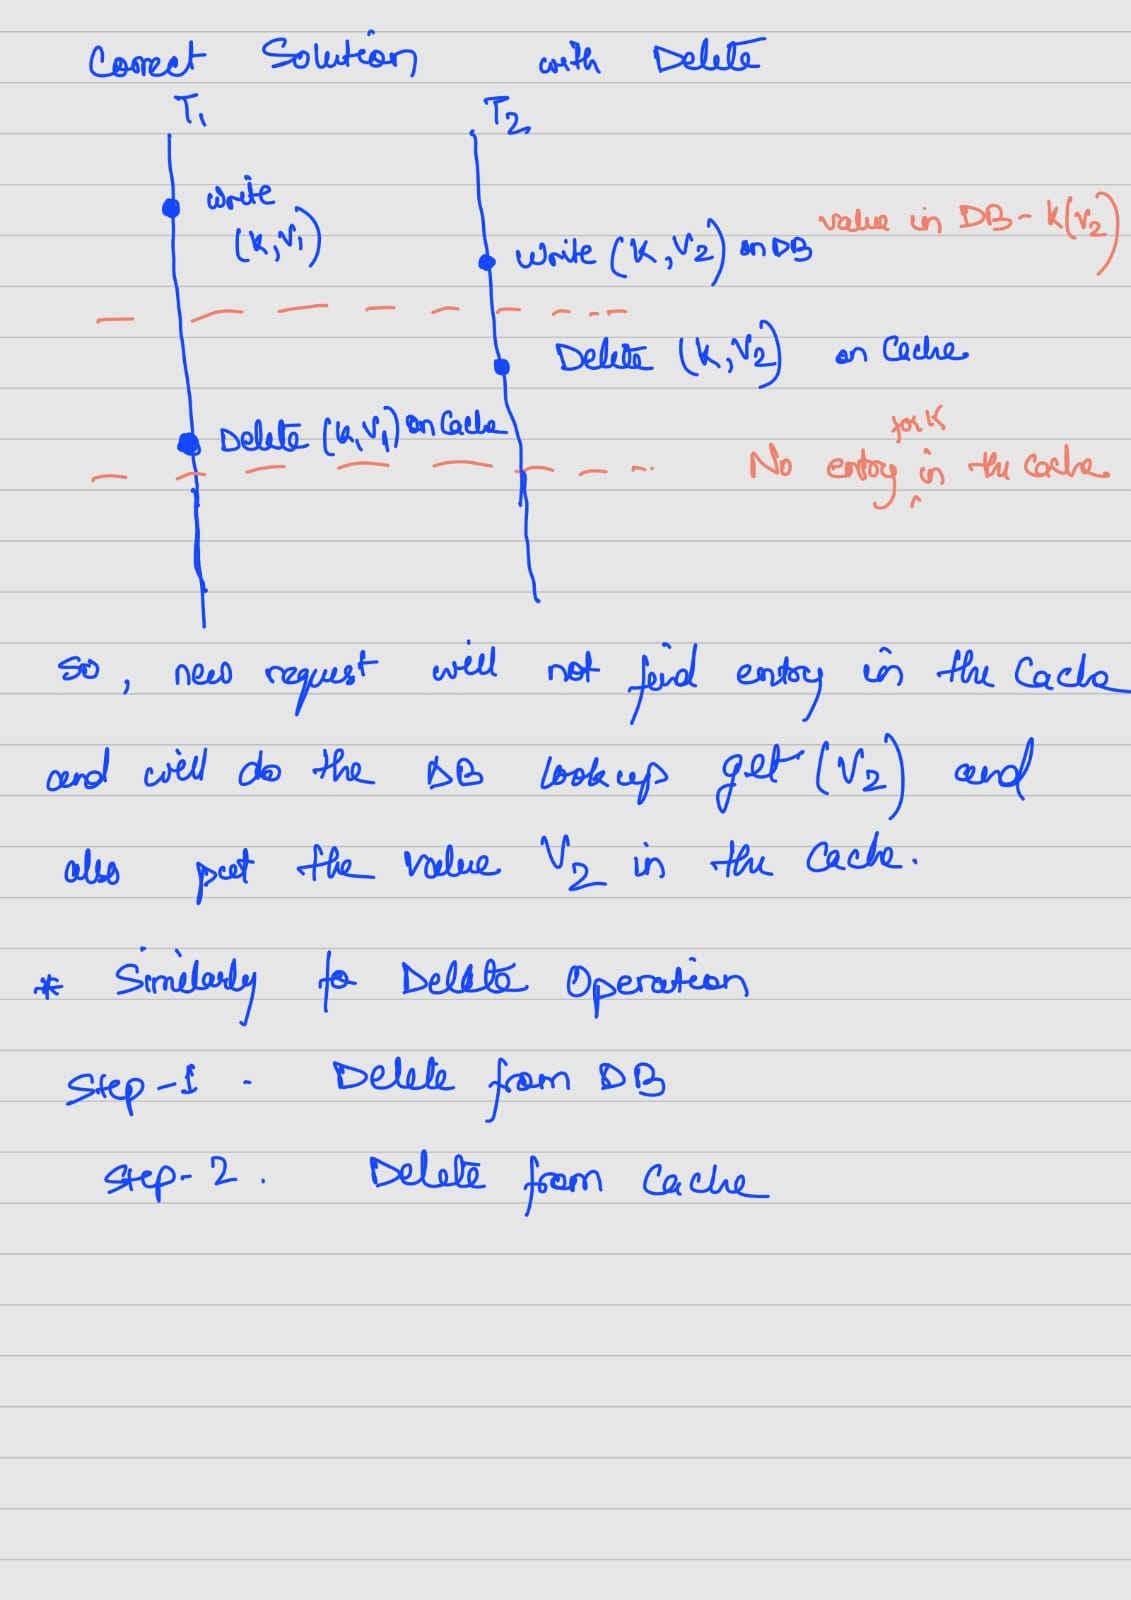 Correct Solution with Delete
T1 T2
write
(k,V1)
Write (K,V2) on DB value in DB - K(V2)
Delete (k,V2) on Cache
Delete (k,V1) on Cache
for K
No entry in the Cache
so, new request will not find entry in the Cache
and will do the DB lookups get (V2) and
also put the value V2 in the Cache.
* Similarly fo Delete Operation
Step-1 - Delete from DB
Step-2. Delete from Cache